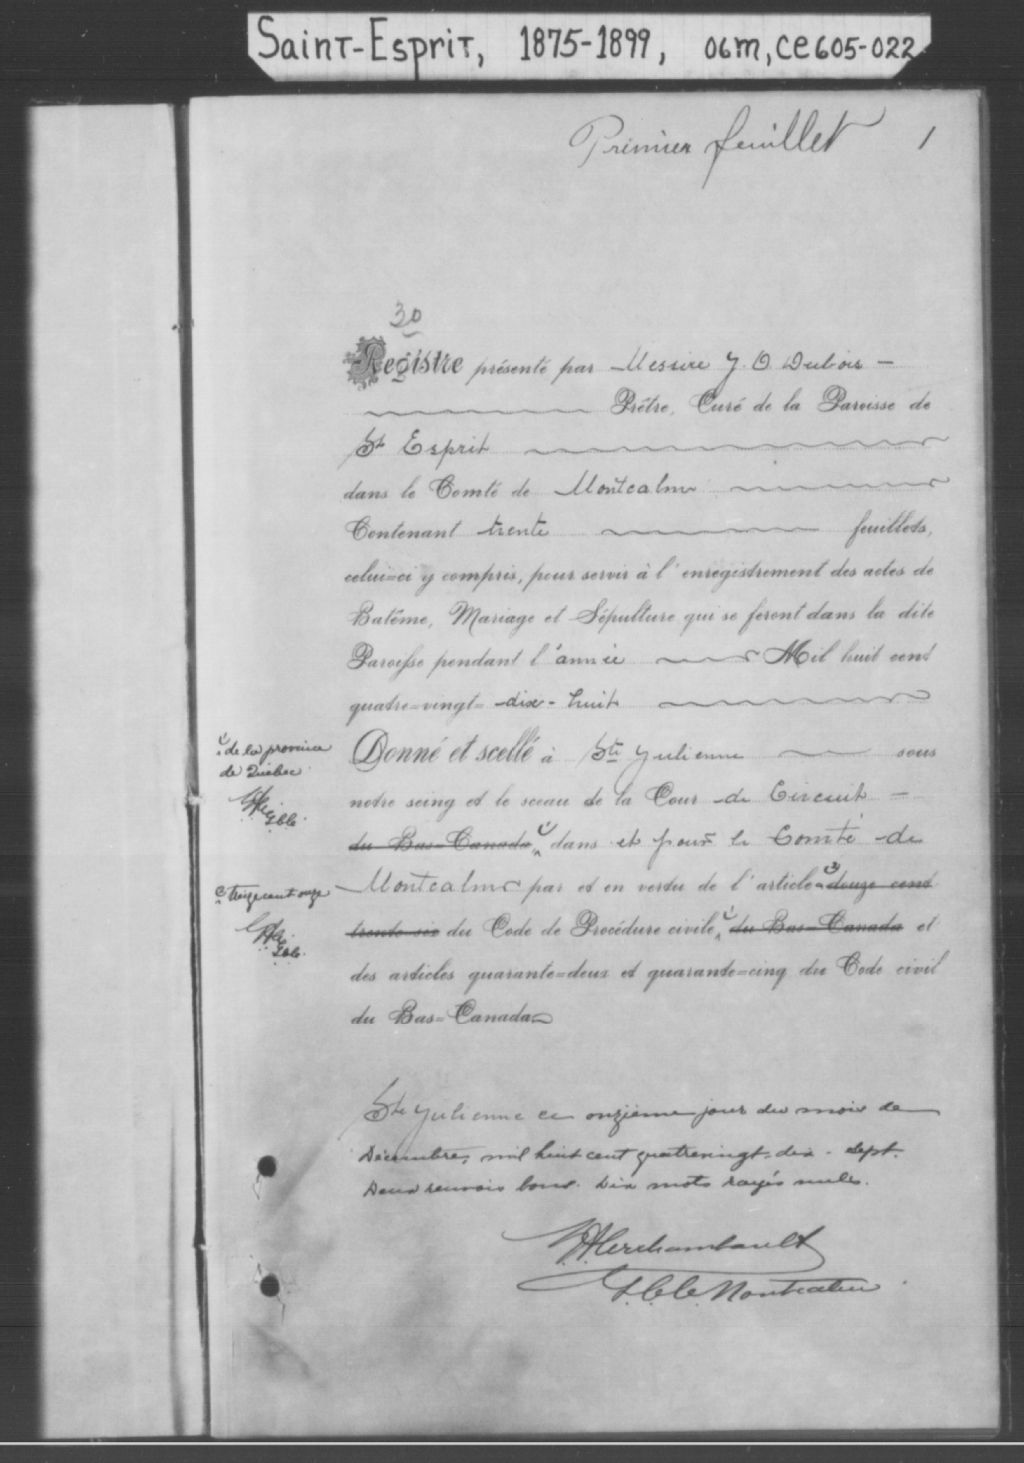 Saint-Esprit, 1875-1899, 06m, ce605-022
Prémier feuillet 1
30
Registre présenté par Messire J. O Dubois
Prêtre, Curé de la Paroisse de
St Esprit
dans le Comté de Montcalm
Contenant trente feuillets,
celui=ci y compris, pour servir à l'enregistrement des actes de
Batême, Mariage et Sépulture qui se feront dans la dite
Paroisse pendant l'année Mil huit cent
quatre=vingt= dix-huit
Donné et scellé à Ste Julienne sous
notre seing et le sceau de la Cour de Circuit
du Bas=Canada, dans et pour le Comté de
Montcalm par et en vertu de l'article douze cent
trente six du Code de Procédure civile, du Bas=Canada et
des articles quarante=deux et quarante=cinq du Code civil
du Bas=Canada
de la province
de Québec
treize cent onze
Ste Julienne ce onzième jour du mois de
Décembre, mil huit cent quatrevingt-dix-sept.
Deux renvois bons. Dix mots rayés nuls.
Archambault
Montcalm